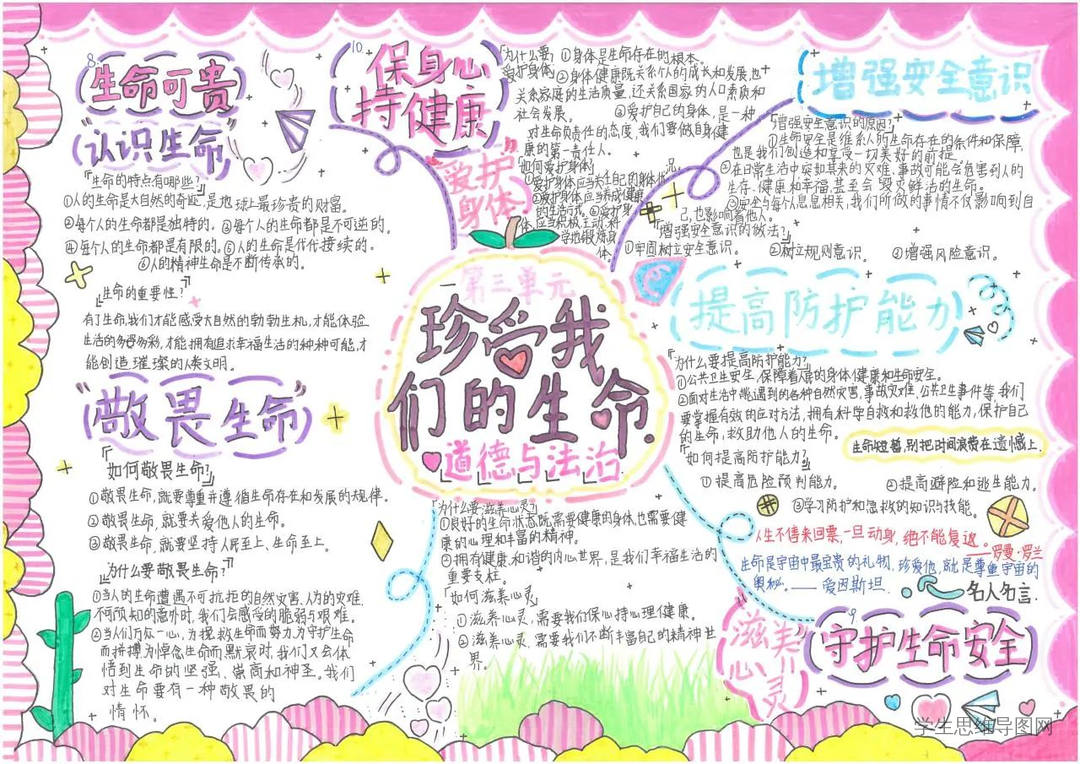 8
生命可贵
"认识生命"
「生命的特点有哪些?」
①人的生命是大自然的奇迹,是地球上最珍贵的财富。
②每个人的生命都是独特的。③每个人的生命都是不可逆的。
④每个人的生命都是有限的。⑤人的生命是代代接续的。
⑥人的精神生命是不断传承的。
「生命的重要性?」
有了生命,我们才能感受大自然的勃勃生机,才能体验
生活的多姿多彩,才能拥有追求幸福生活的种种可能,才
能创造璀璨的人类文明。
"敬畏生命"
「如何敬畏生命?」
①敬畏生命,就要尊重并遵循生命存在和发展的规律。
②敬畏生命,就要关爱他人的生命。
③敬畏生命,就要坚持人民至上、生命至上。
「为什么要敬畏生命?」
①当人的生命遭遇不可抗拒的自然灾害、人为的灾难、
不可预知的意外时,我们会感受的脆弱与艰难。
②当人们万众一心,为拯救生命而努力,为守护生命
而拼搏,为悼念生命而默哀时,我们又会体
悟到生命的坚强、崇高和神圣。我们
对生命要有一种敬畏的
情怀。
10
保身心
持健康
"爱护
身体"
「为什么要爱护身体」
①身体是生命存在的根本。
②身体健康既关系个人的成长和发展,也
关系家庭的生活质量,还关系国家的人口素质和
社会发展。
③爱护自己的身体,是一种
对生命负责任的态度,我们要做自身健
康的第一责任人。
「如何爱护身体」
第三单元
珍爱我
们的生命
道德与法治
「为什么要滋养心灵」
①良好的生命状态既需要健康的身体也需要健
康的心理和丰富的精神。
②拥有健康、和谐的内心世界,是我们幸福生活的
重要支柱。
「如何滋养心灵」
①滋养心灵,需要我们保心持心理健康。
②滋养心灵,需要我们不断丰富自己的精神世
界。
滋养
心灵
增强安全意识
「增强安全意识的原因?」
①生命安全是维系人所生命存在的条件和保障,
也是我们创造和享受一切美好的前提。
②在日常生活中突如其来的灾难、事故可能会危害到人的
生存、健康和幸福,甚至会毁灭鲜活的生命。
③安全与每个人息息相关,我们所做的事情不仅影响到自
己,也影响着他人。
「增强安全意识的做法」
①牢固树立安全意识。
②树立规则意识。
③增强风险意识。
提高防护能力
「为什么要提高防护能力?」
①公共卫生安全,保障着人民的身体健康和生命安全。
②面对生活中可能遇到的各种自然灾害、事故灾难、公共卫生事件等,我们
要掌握有效的应对方法,拥有科学自救和救他的能力,保护自己
的生命,救助他人的生命。
生命短暂,别把时间浪费在遗憾上
「如何提高防护能力?」
①提高危险预判能力。
②提高避险和逃生能力。
③学习防护和急救的知识与技能。
人生不售来回票,一旦动身,绝不能复返。
——罗曼·罗兰
生命是宇宙中最宝贵的礼物,珍爱他,就是尊重宇宙的
奥秘。——爱因斯坦
名人名言
9
守护生命安全
学生思维导图网